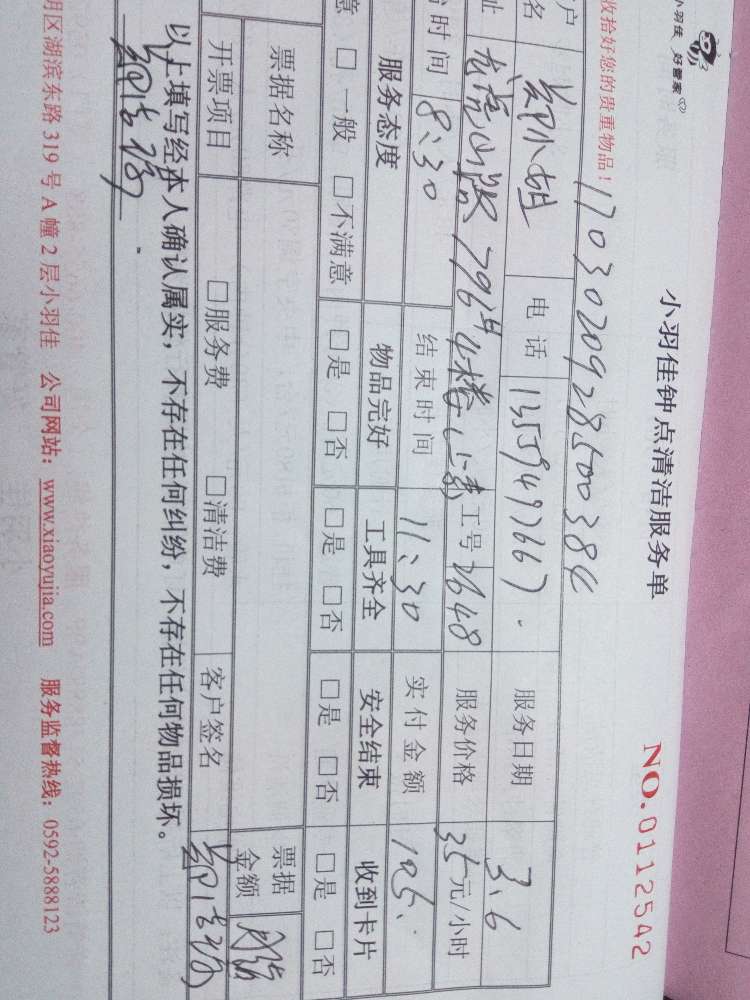 小羽佳 好管家
小羽佳钟点清洁服务单
NO.0112542
收拾好您的贵重物品！
170302092850038
户名 小姐 电话 13559497667 服务日期 3.6
址 796 4楼 工号 2648 服务价格 35元/小时
时间 8:30 结束时间 11:30 实付金额 105.
服务态度 物品完好 工具齐全 安全结束 收到卡片
意 □一般 □不满意 □是 □否 □是 □否 □是 □否 □是 □否
票据名称 票据金额
开票项目 □服务费 □清洁费 客户签名
以上填写经本人确认属实，不存在任何纠纷，不存在任何物品损坏。
明区湖滨东路319号A幢2层小羽佳 公司网站：www.xiaoyujia.com 服务监督热线：0592-5888123